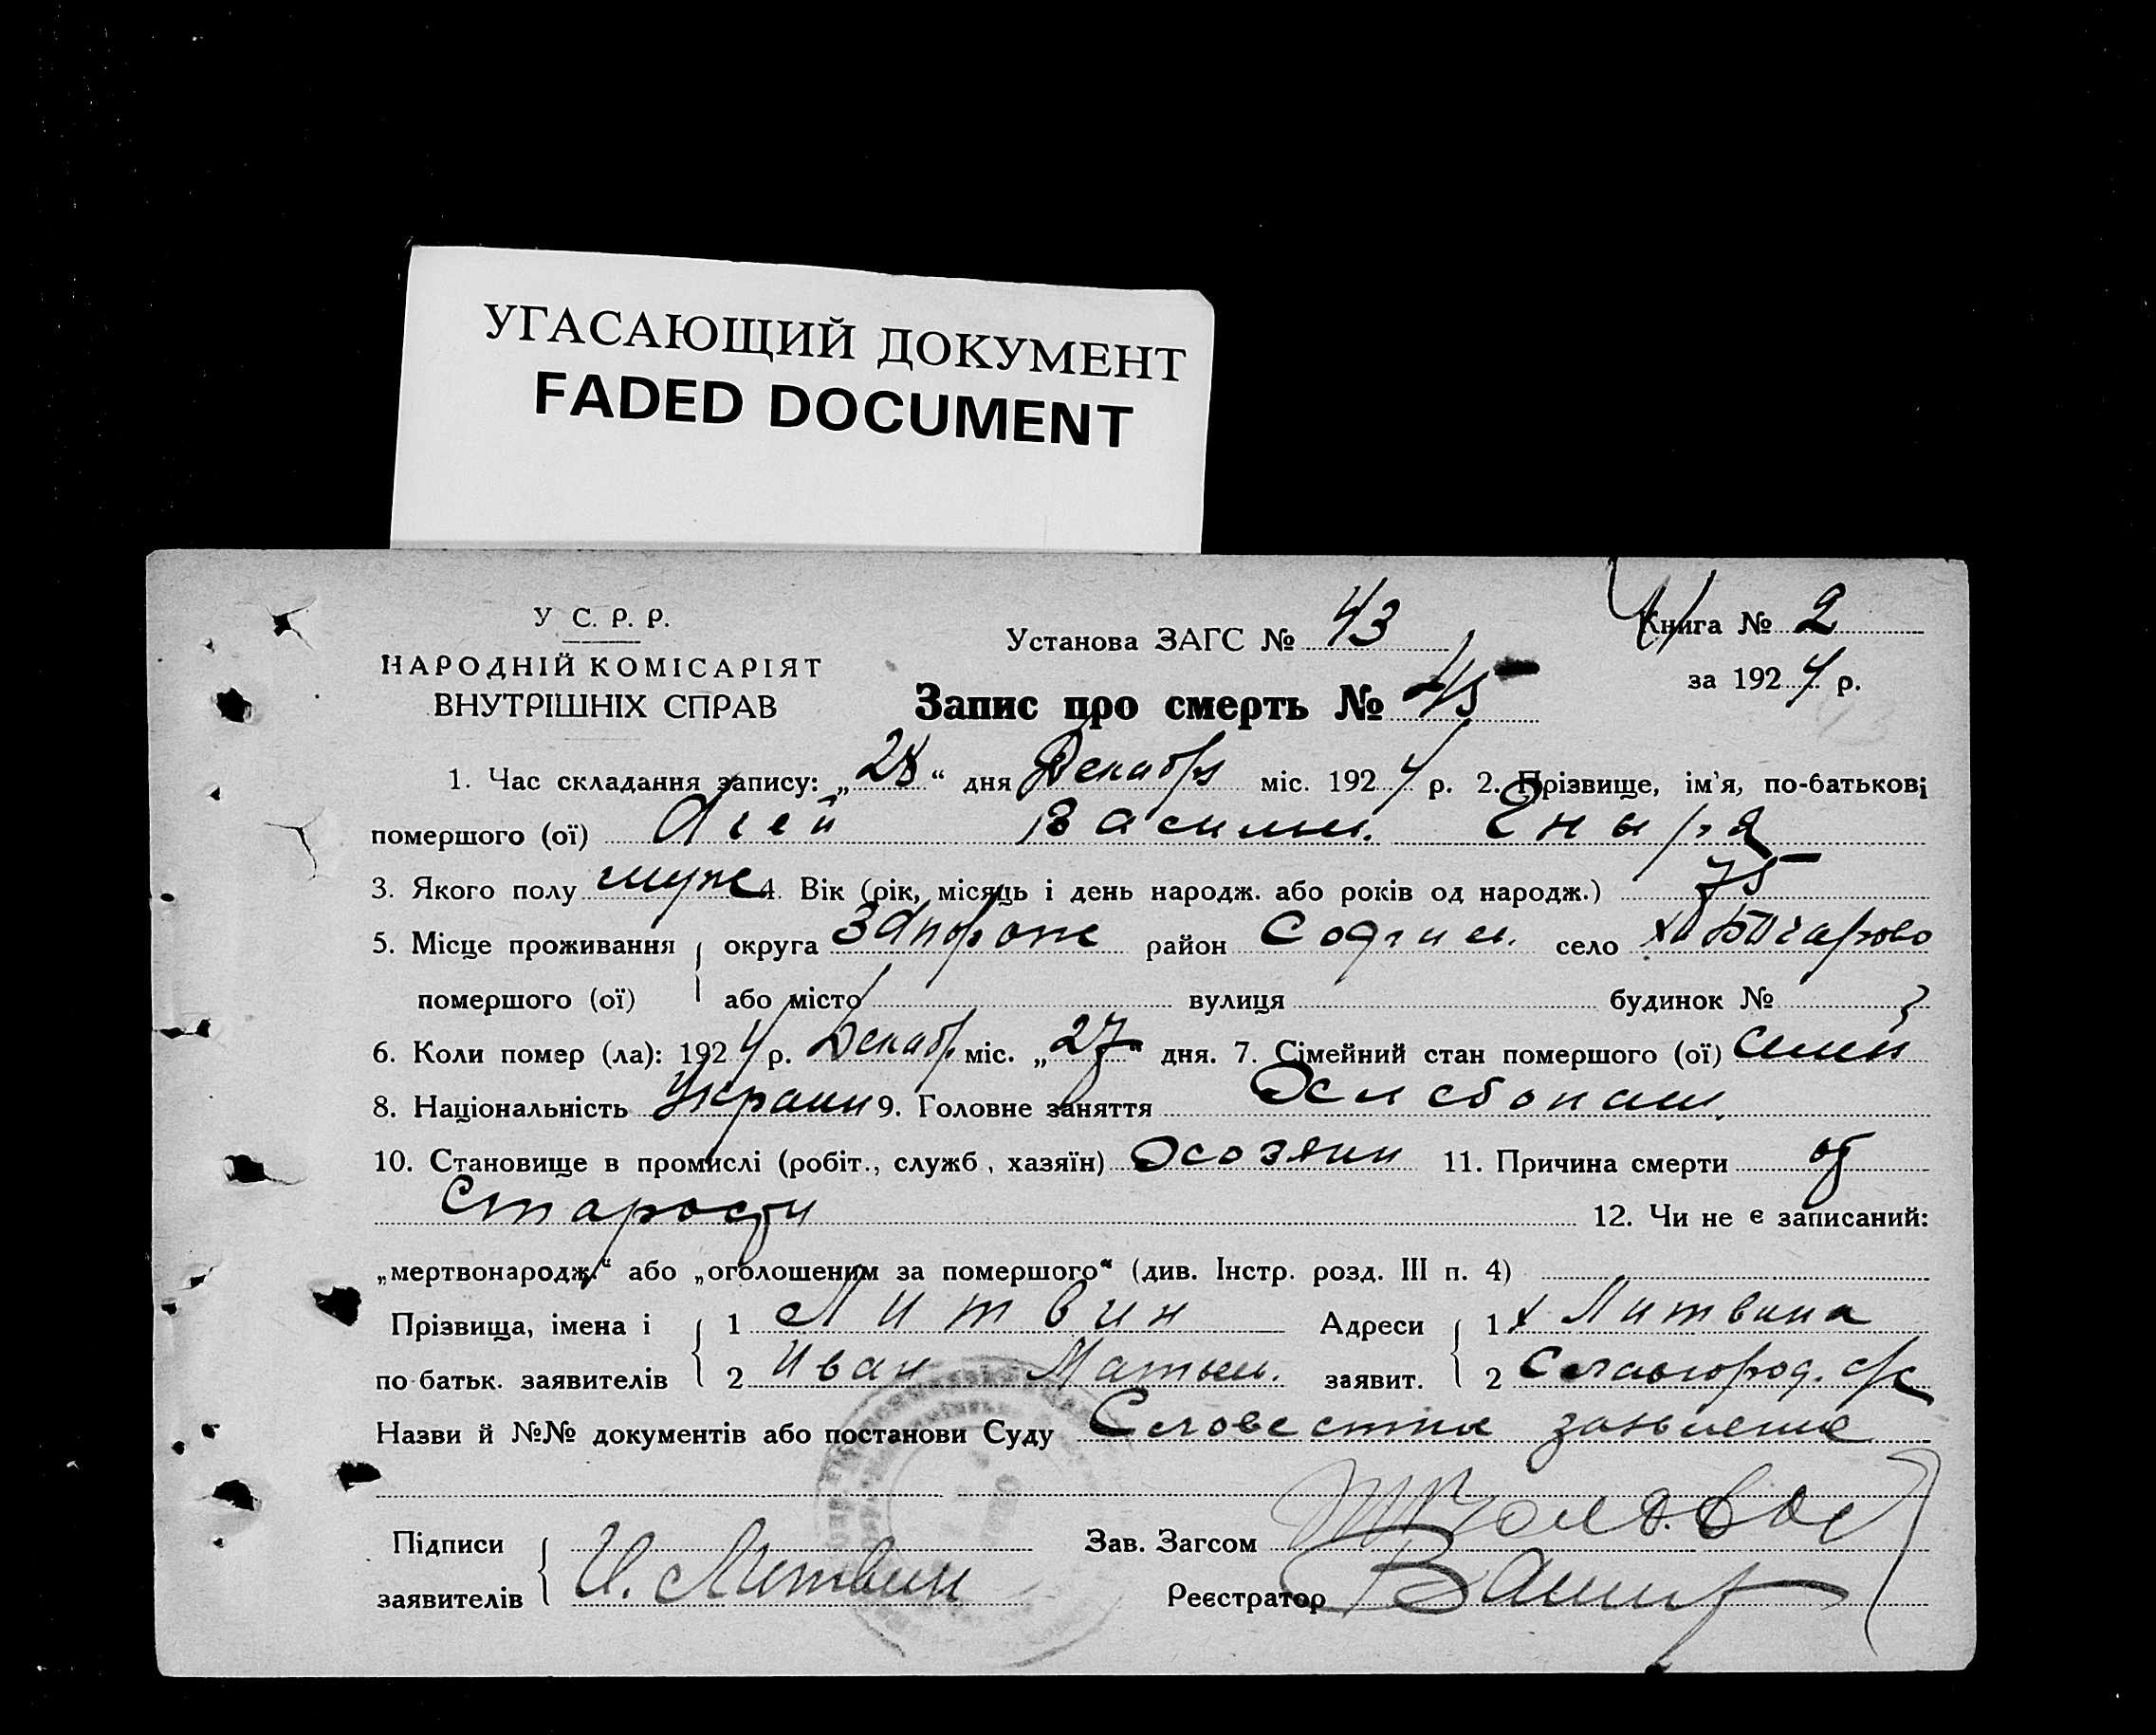 УГАСАЮЩИЙ ДОКУМЕНТ
FADED DOCUMENT
У С. Р. Р.
НАРОДНІЙ КОМІСАРІЯТ
ВНУТРІШНІХ СПРАВ
Установа ЗАГС № 43
Книга № 2
за 1924 р.
Запис про смерть № 45
1. Час складання запису: „28“ дня Декабря міс. 1924 р. 2. Прізвище, ім'я, по-батькові
помершого (ої) Агей Васильев.
3. Якого полу муж 4. Вік (рік, місяць і день народж. або років од народж.) 75
5. Місце проживання округа Запорож район Софиев. село
помершого (ої) або місто вулиця будинок №
6. Коли помер (ла): 1924 р. Декабр міс. „27“ дня. 7. Сімейний стан помершого (ої) семей
8. Національність Украин 9. Головне заняття Хлебопаш.
10. Становище в промислі (робіт., служб, хазяїн) Хозяин 11. Причина смерти от
Старости 12. Чи не є записаний:
„мертвонародж.“ або „оголошеним за помершого“ (див. Інстр. розд. III п. 4)
Прізвища, імена і 1 Литвин Адреси 1 х Литвина
по батьк. заявителів 2 Иван Матвеев. заявит. 2 Славгород. с/с
Назви й №№ документів або постанови Суду Словестное заявление
Підписи Зав. Загсом
заявителів И. Литвин Реєстратор